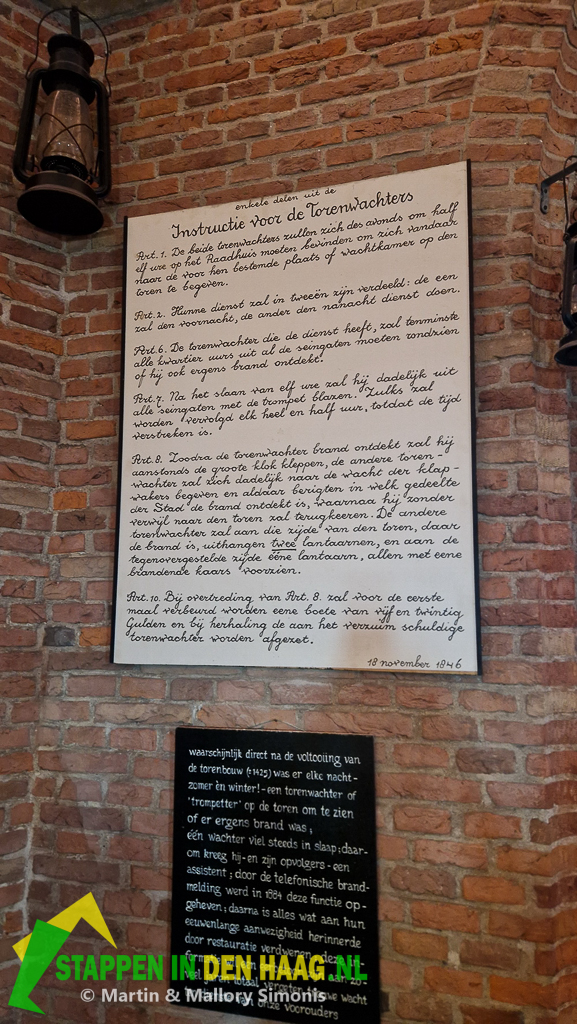 enkele delen uit de
Instructie voor de Torenwachters
Art. 1. De beide torenwachters zullen zich des avonds om half
elf ure op het Raadhuis moeten bevinden om zich vandaar
naar de voor hen bestemde plaats of wachtkamer op den
toren te begeven.
Art. 2. Hunne dienst zal in tweeën zijn verdeeld: de een
zal den voornacht, de ander den nanacht dienst doen.
Art. 6. De torenwachter die de dienst heeft, zal tenminste
alle kwartier uurs uit al de seingaten moeten rondzien
of hij ook ergens brand ontdekt.
Art. 7. Na het slaan van elf ure zal hij dadelijk uit
alle seingaten met de trompet blazen. Zulks zal
worden vervolgd elk heel en half uur, totdat de tijd
verstreken is.
Art. 8. Zoodra de torenwachter brand ontdekt zal hij
aanstonds de groote klok kleppen, de andere toren-
wachter zal zich dadelijk naar de wacht der klap-
wakers begeven en aldaar berigten in welk gedeelte
der Stad de brand ontdekt is, waarnaa hij zonder
verwijl naar den toren zal terugkeeren. De andere
torenwachter zal aan die zijde van den toren, daar
de brand is, uithangen twee lantaarnen, en aan de
tegenovergestelde zijde ééne lantaarn, allen met eene
brandende kaars voorzien.
Art. 10. Bij overtreding van Art. 8. zal voor de eerste
maal verbeurd worden eene boete van vijf en twintig
Gulden en bij herhaling de aan het verzuim schuldige
torenwachter worden afgezet.
18 november 1846
waarschijnlijk direct na de voltooiing van
de torenbouw (±1425) was er elke nacht-
zomer èn winter! - een torenwachter of
'trompetter' op de toren om te zien
of er ergens brand was;
één wachter viel steeds in slaap; daar-
om kreeg hij - en zijn opvolgers - een
assistent; door de telefonische brand-
melding werd in 1884 deze functie op-
geheven; daarna is alles wat aan hun
eeuwenlange aanwezigheid herinnerde
door restauratie verdwenen
STAPPEN IN DEN HAAG.NL
totaal vergeten wacht
© Martin & Mallory Simonis
onze voorouders